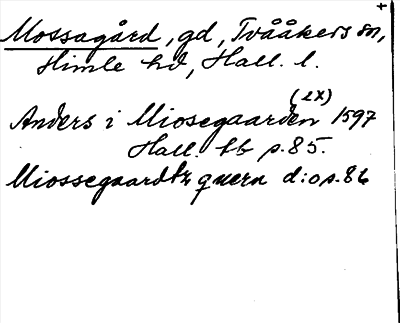 +
Mossagård, gd, Tvååkers sn,
Himle hd, Hall. l.
(2X)
Anders i Miosegaarden 1597
Hall. hb p. 85.
Miossegaardtz quern d:o p. 86